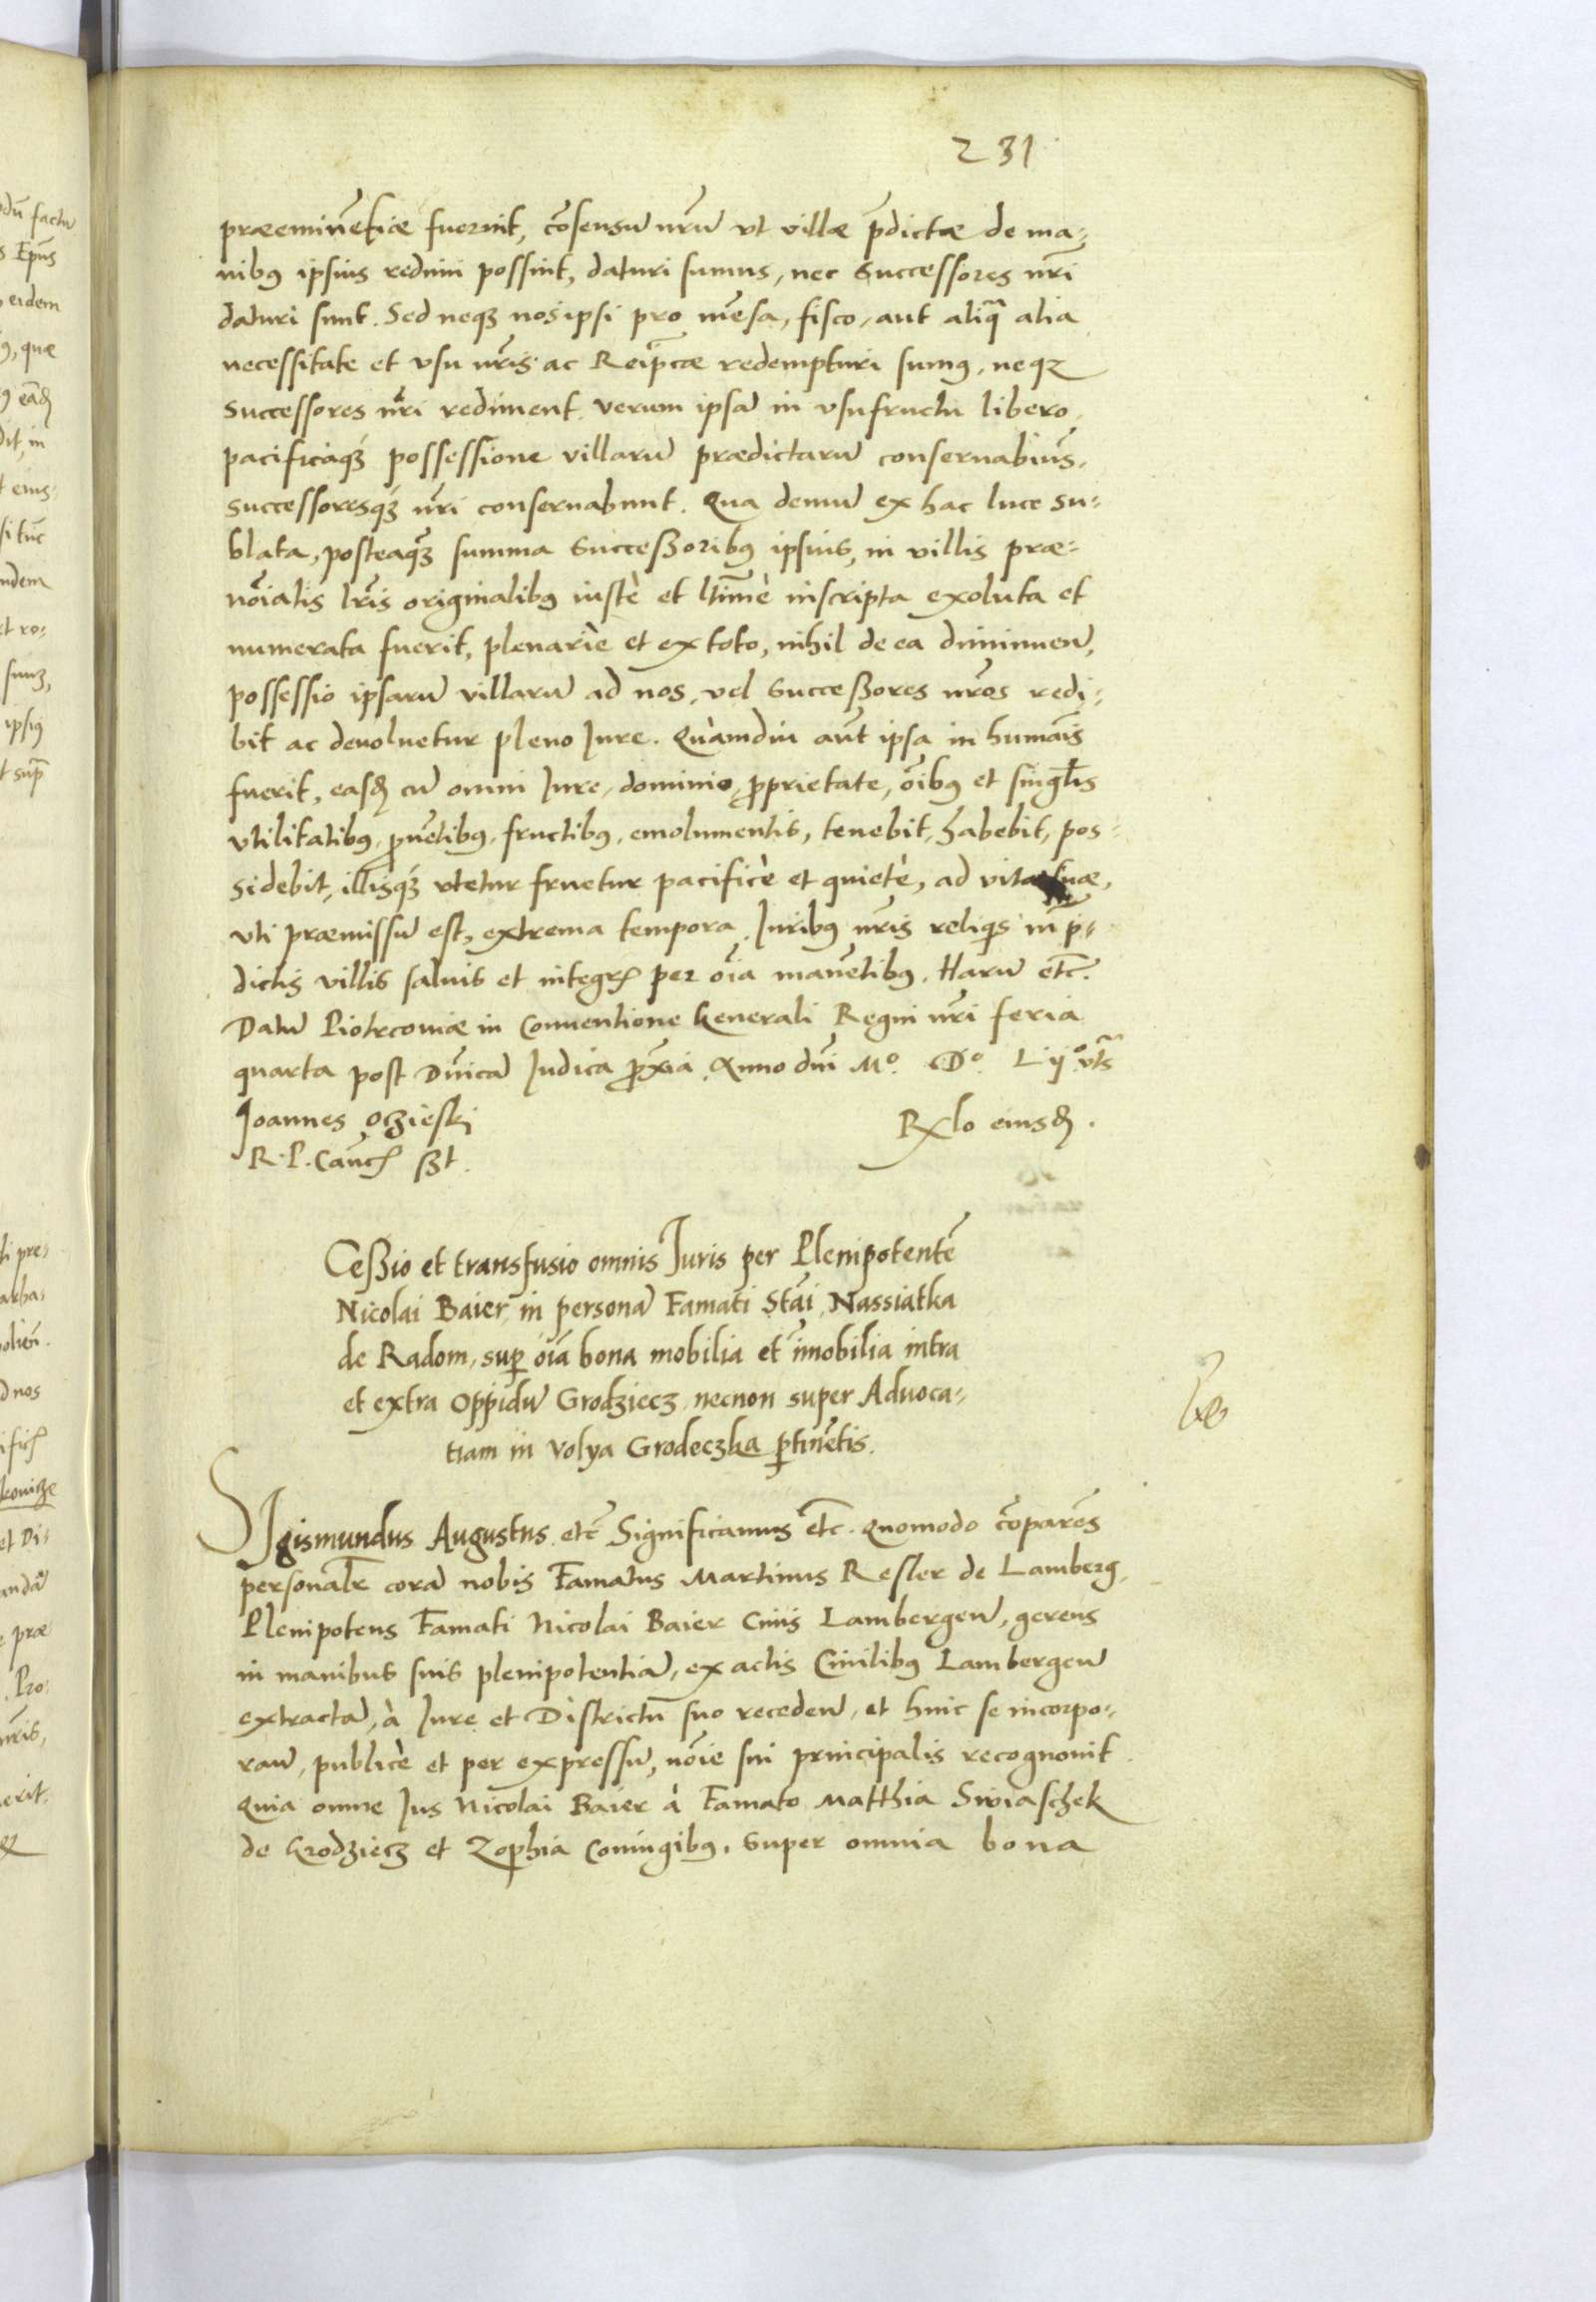 231
præeminẽtiæ fuerint, cõsensũ nr̃ũ vt villæ p̃dictæ de ma⸗
nibꝰ ipsius redimi possint, daturi sumus, nec Successores nr̃i
daturi sunt. Sed neqꝫ nosipsi pro mẽsa, fisco, aut aliq̃ alia
necessitate et vsu nr̃is ac Reip̃cæ redempturi sumꝰ, neqꝫ
Successores nr̃i rediment. verum ipsã in vsufructu libero,
pacificaqꝫ possessione villarũ prædictarũ conseruabim̃s,
Successoresqꝫ nr̃i conseruabunt. Qua demũ ex hac luce su⸗
blata, posteaqꝫ summa Succeßoribꝰ ipsius, in villis præ⸗
nõiatis lr̃is originalibꝰ iustè et ltimè inscripta exoluta et
numerata fuerit, plenariè et ex toto, nihil de ea diminueñ,
possessio ipsarũ villarũ ad nos, vel Succeßores nr̃os redi⸗
bit ac deuoluetur pleno Jure. Quàmdiu aũt ipsa in humãis
fuerit, easd̃ cũ omni Jure, dominio, ꝓprietate, õibꝰ et singl̃is
vtilitatibꝰ, ꝓuẽtibꝰ, fructibꝰ, emolumentis, tenebit, habebit, pos⸗
sidebit, illisqꝫ vtetur fruetur pacificè et quietè, ad vitæ suæ,
vti præmissũ est, extrema tempora. Juribꝰ nr̃is reliq̃s in p̃⸗
dictis villis saluis et integr̃ per õia manẽtibꝰ. Harũ etc̃.
Datũ Piotrcouiæ in Conuentione Generali Regni nr̃i feria
quarta post Dñicã Judica ꝓx̃ia. Anno dñi Mº. Dº. Lijº. vts̃
Joannes Oczieski
R. P. Canc̃ ßt.
Rłło eiusd̃.
Ceßio et transfusio omnis Juris per Plenipotentẽ
Nicolai Baier, in personã Famati Stãi Nassiatka
de Radom, suꝑ õia bona mobilia et im̃obilia intra
et extra Oppidũ Grodziecz necnon super Aduoca⸗
tiam in Volya Grodeczka ꝑtinẽtis.
Sigismundus Augustus etc̃ Significamus etc̃. Quomodo cõparẽs
personalr̃ corã nobis Famatus Martinus Resler de Lamberg,
Plenipotens Famati Nicolai Baier Ciuis Lambergeñ, gerens
in manibus suis plenipotentiã, ex actis Ciuilibꝰ Lambergeñ
extractã, à Jure et Districtu suo recedeñ, et huic se incorpo⸗
rañ, publicè et per expressũ, nõie sui principalis recognouit
Quia omne Jus Nicolai Baier à Famato Matthia Swiaschek
de Grodziecz et Zophia Coniugibꝰ, Super omnia bona